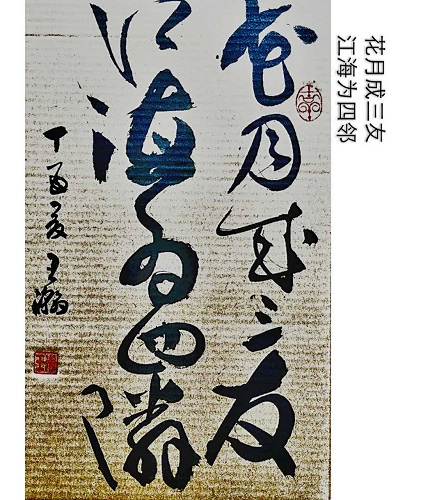 花月成三友
江海为四邻
花月成三友
江海为四邻
丁酉夏王瀚